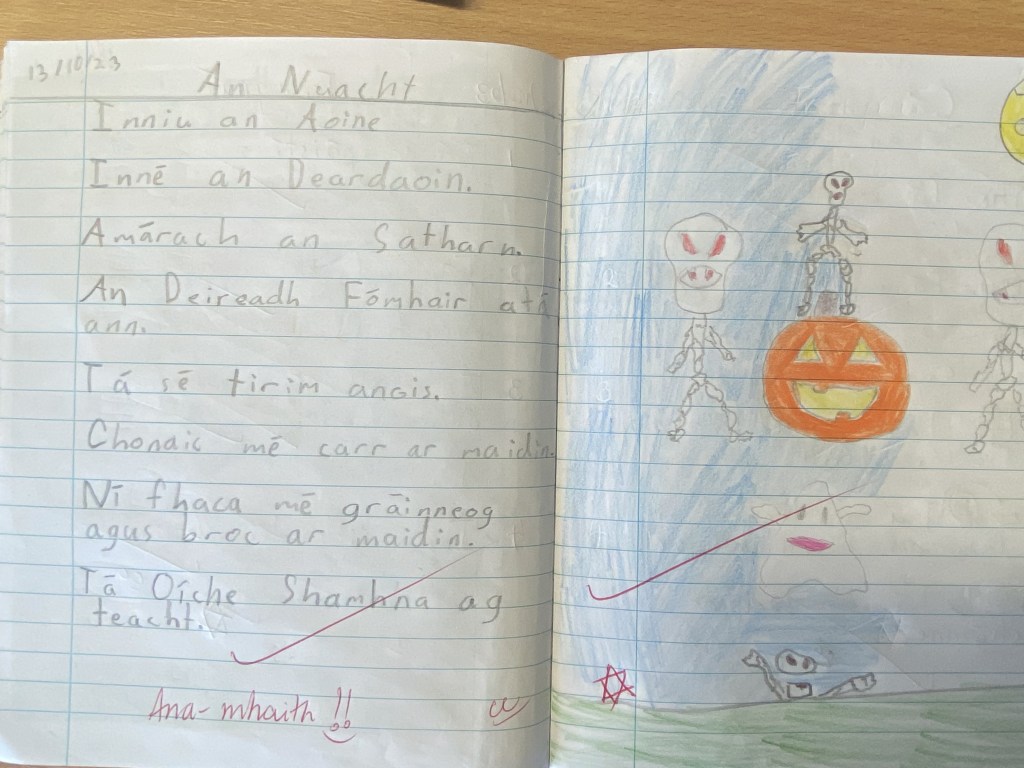 13/10/23
An Nuacht
Inniu an Aoine
Inné an Deardaoin.
Amárach an Satharn.
An Deireadh Fómhair atá
ann.
Tá sé tirim anois.
Chonaic mé carr ar maidin
Ní fhaca mé gráinneog
agus broc ar maidin.
Tá Oíche Shamhna ag
teacht.
Ana-mhaith !!